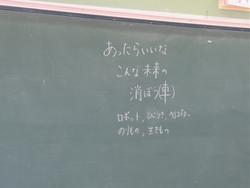 あったらいいな
こんな未来の
消ぼう(車)
ロボット、ひこうき、ヘリコプター
のりもの、生きもの